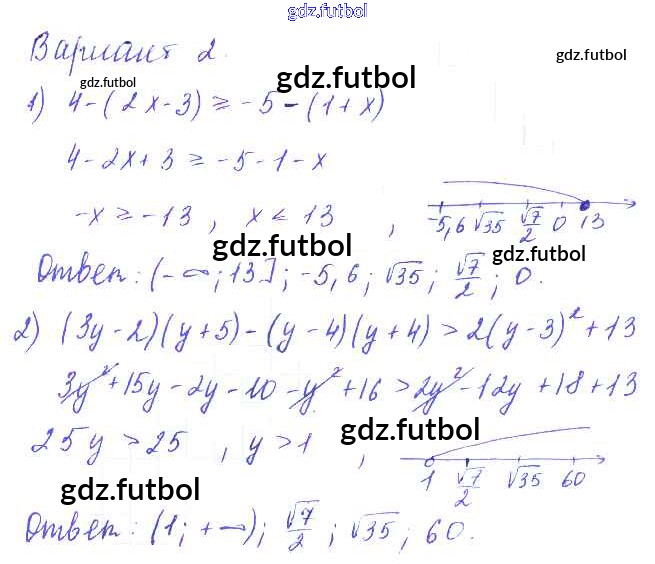 gdz.futbol
Вариант 2.
gdz.futbol
gdz.futbol
gdz.futbol
1) 4-(2x-3) ≥ -5-(1+x)
4-2x+3 ≥ -5-1-x
-x ≥ -13, x ≤ 13,
-5,6 √35 √7/2 0 13
gdz.futbol
gdz.futbol
Ответ: (-∞; 13]; -5,6; √35; √7/2; 0.
2) (3y-2)(y+5)-(y-4)(y+4) > 2(y-3)²+13
3y²+15y-2y-10-y²+16 > 2y²-12y+18+13
gdz.futbol
25y > 25, y > 1,
1 √7/2 √35 60
gdz.futbol
gdz.futbol
Ответ: (1; +∞); √7/2; √35; 60.